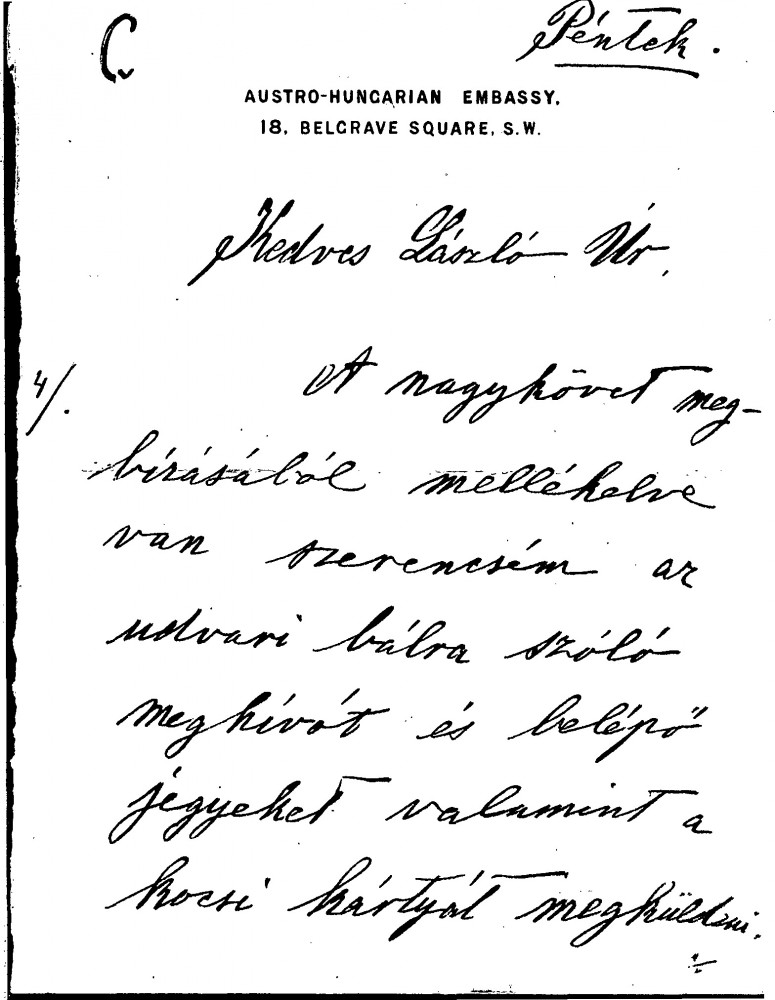 Péntek.
AUSTRO-HUNGARIAN EMBASSY,
18, BELGRAVE SQUARE, S.W.
Kedves László Úr,
4/.
A nagykövet meg-
bízásából mellékelve
van szerencsém az
udvari bálra szóló
meghívót és belépő
jegyeket valamint a
kocsi kártyát megküldeni.
./.